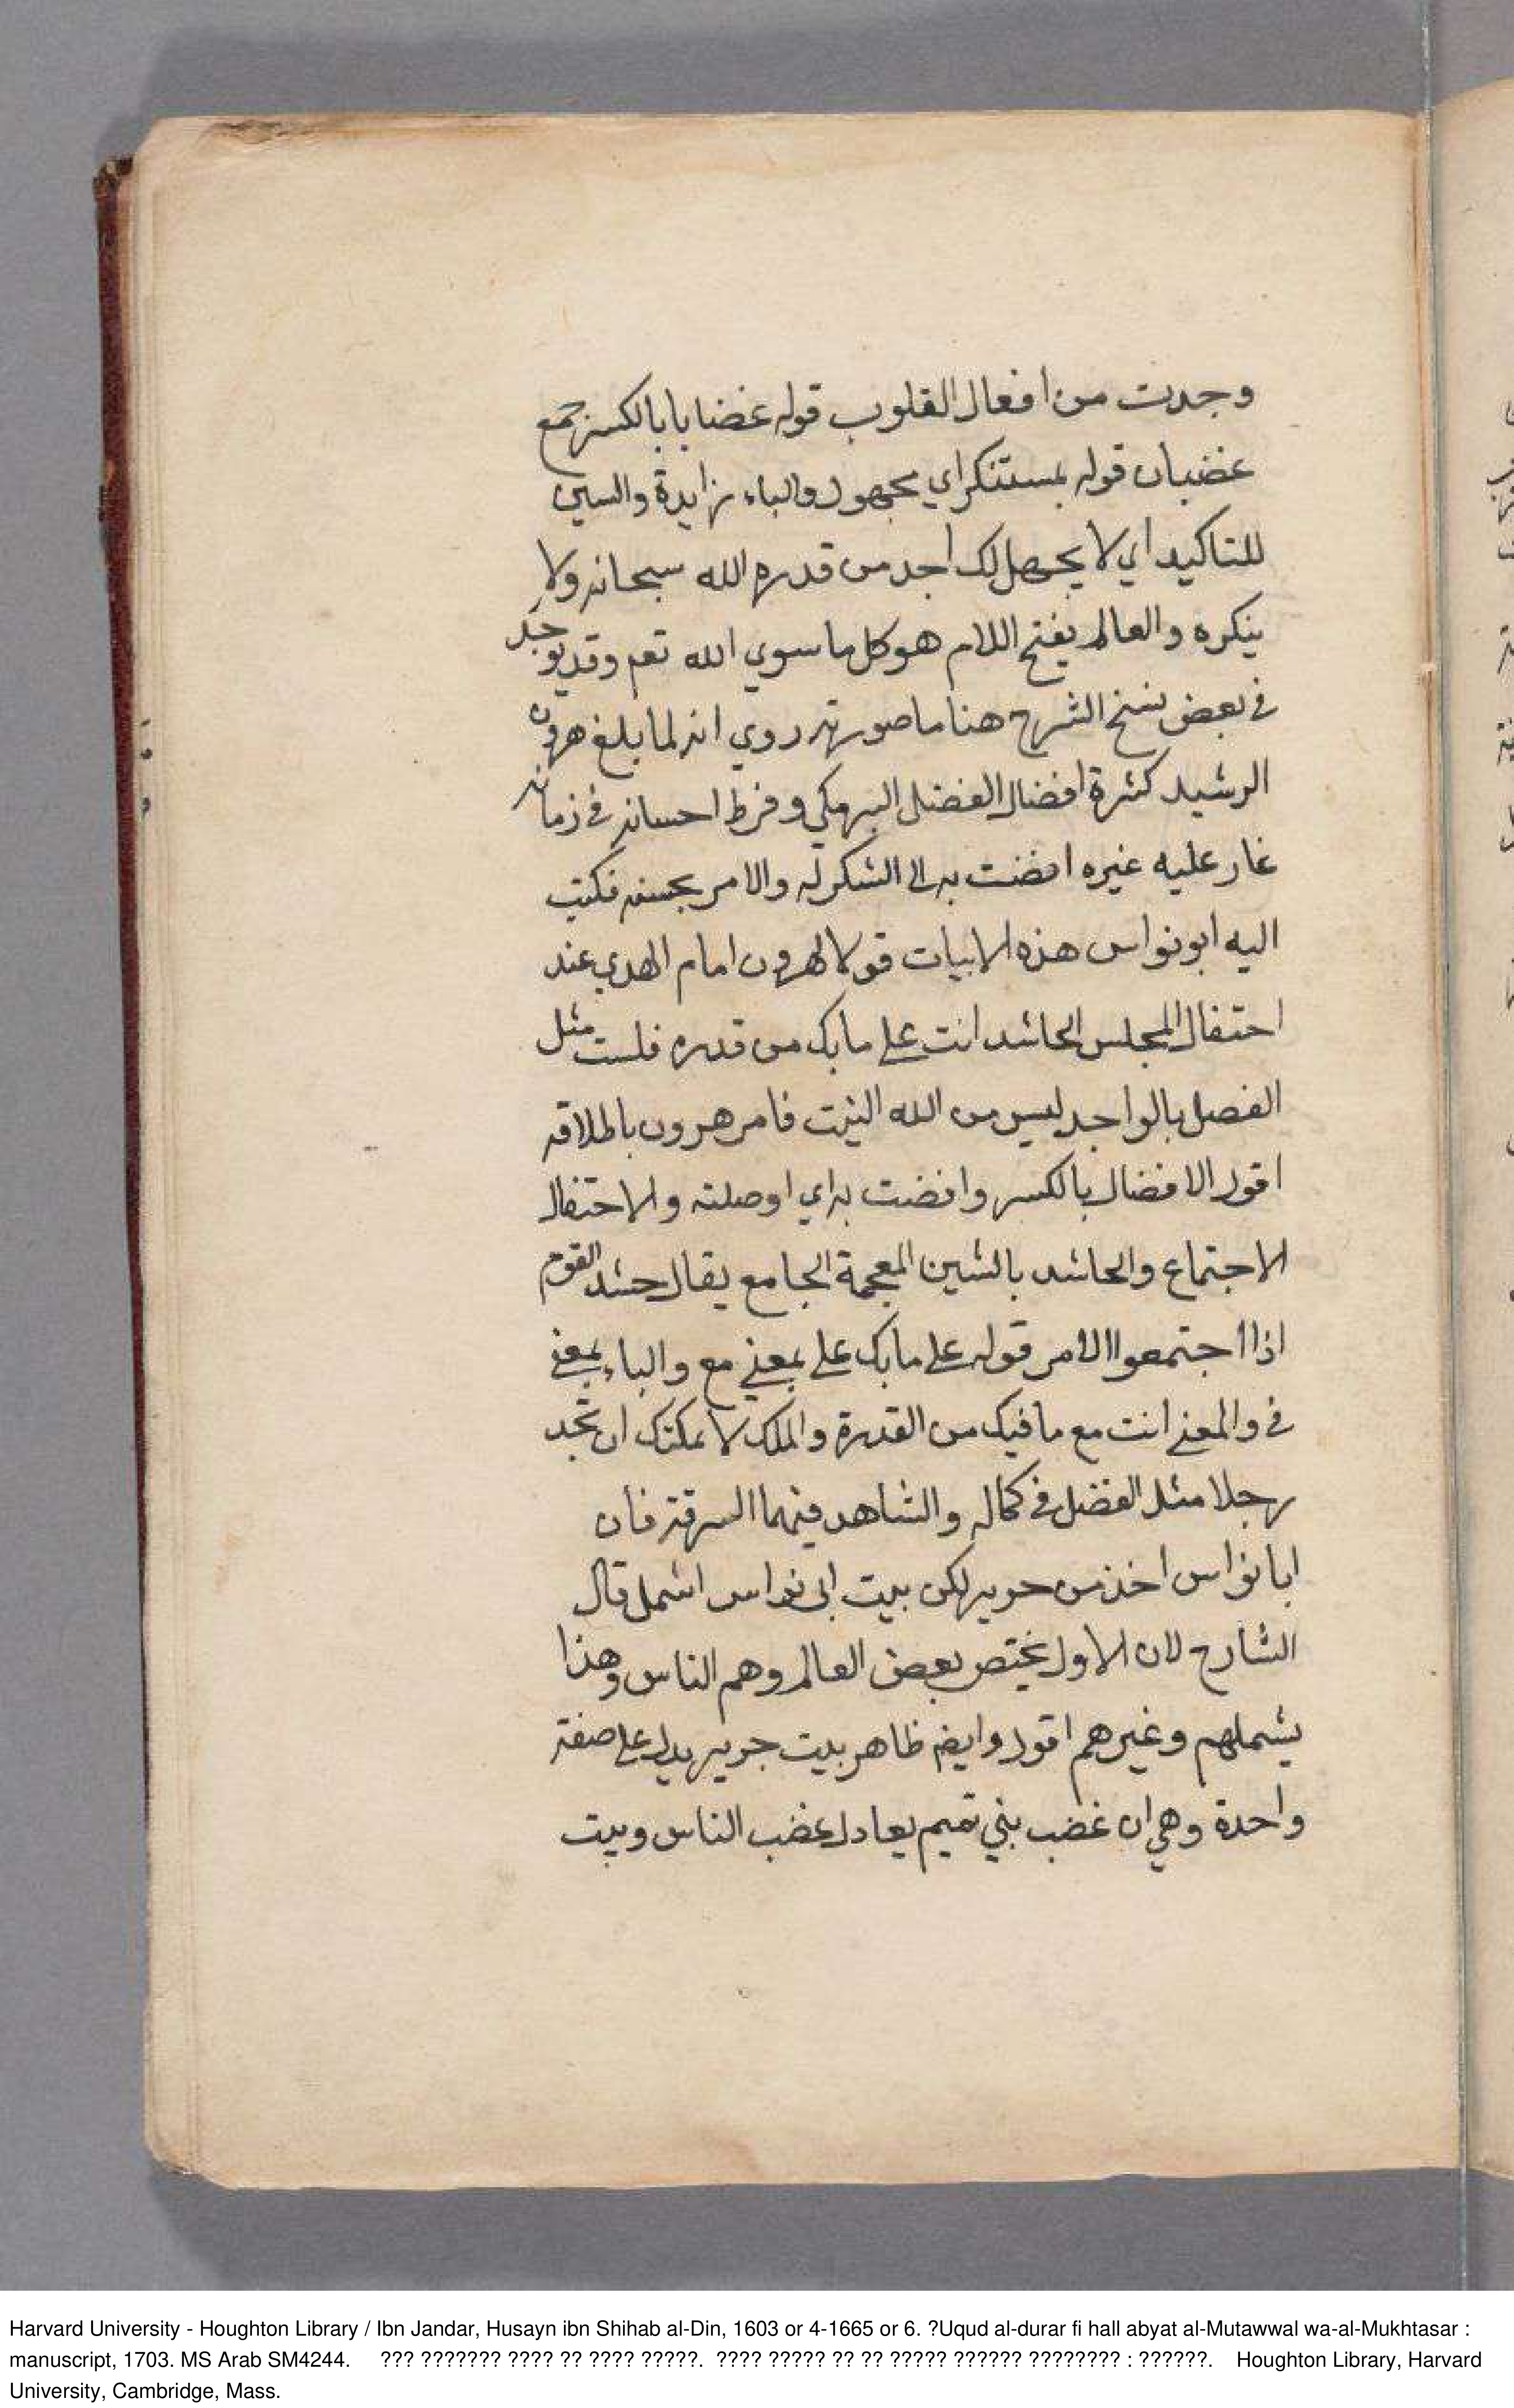 وجدت من افعال القلوب قوله غضابا بالكسر جمع
غضبان قوله بمستنكر اي مجهول والباء زايدة والسين
للتاكيد اي لا يجهل لك احد من قدره الله سبحانه ولا
ينكره والعالم بفتح اللام هو كل ما سوي الله تعم وقد يوجد
في بعض نسخ الشرح هنا ما صورته روي انه لما بلغ هرون
الرشيد كثرة افضال الفضل البرمكي وفرط احسانه في زمانه
غار عليه غيره افضت به الى الشكر له والامر بحبسه فكتب
اليه ابو نواس هذه الابيات قولا لهرون امام الهدي عند
احتفال المجلس الحاشد انت على ما بك من قدره فلست مثل
الفصل بالواجد ليس من الله البيت فامر هرون باطلاقه
اقول الافضال بالكسر وافضت به اي اوصلته والاحتفال
الاجتماع والحاشد بالشين المعجمة الجامع يقال حشد القوم
اذا اجتمعوا الامر قوله على ما بك على بمعني مع والباء بمعني
في والمعني انت مع ما فيك من القدرة والملك لا يمكنك ان تجد
رجلا مثل الفضل في كماله والشاهد فيهما السرقة فان
ابا نواس اخذ من جرير لكن بيت ابى نواس اشمل قال
الشارح لان الاول يختص بعض العالم وهم الناس وهذا
يشملهم وغيرهم اقول وايضم ظاهر بيت جرير يدل على صفة
واحدة وهي ان غضب بني تميم يعادل غضب الناس وبيت
Harvard University - Houghton Library / Ibn Jandar, Husayn ibn Shihab al-Din, 1603 or 4-1665 or 6. ?Uqud al-durar fi hall abyat al-Mutawwal wa-al-Mukhtasar :
manuscript, 1703. MS Arab SM4244. ??? ??????? ???? ?? ???? ?????. ???? ????? ?? ?? ????? ?????? ???????? : ??????. Houghton Library, Harvard
University, Cambridge, Mass.